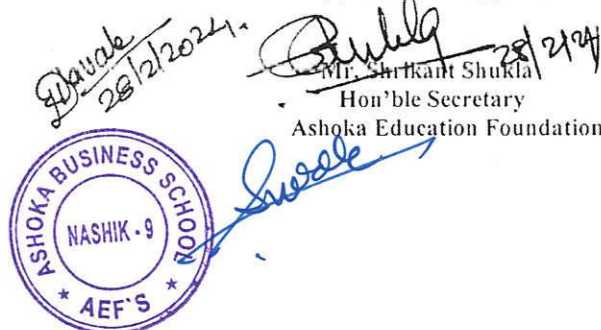 28/2/2024.
28/2/24
Mr. Shrikant Shukla
Hon'ble Secretary
Ashoka Education Foundation
ASHOKA BUSINESS SCHOOL
NASHIK - 9
★ AEF'S ★